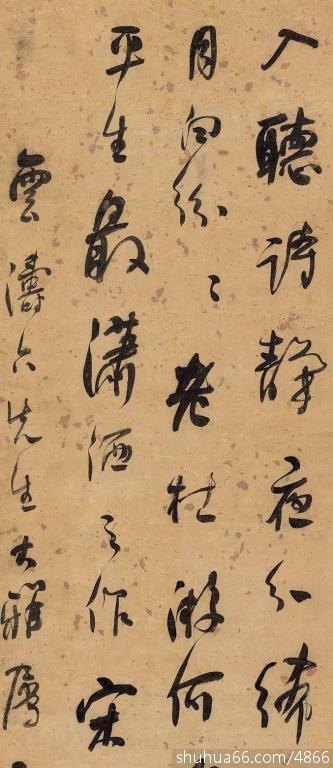 入聽詩靜夜分絺
月白紛〻老杜游何
平生最瀟洒之作宋
雲濤六先生大雅屬
shuhua66.com/4866